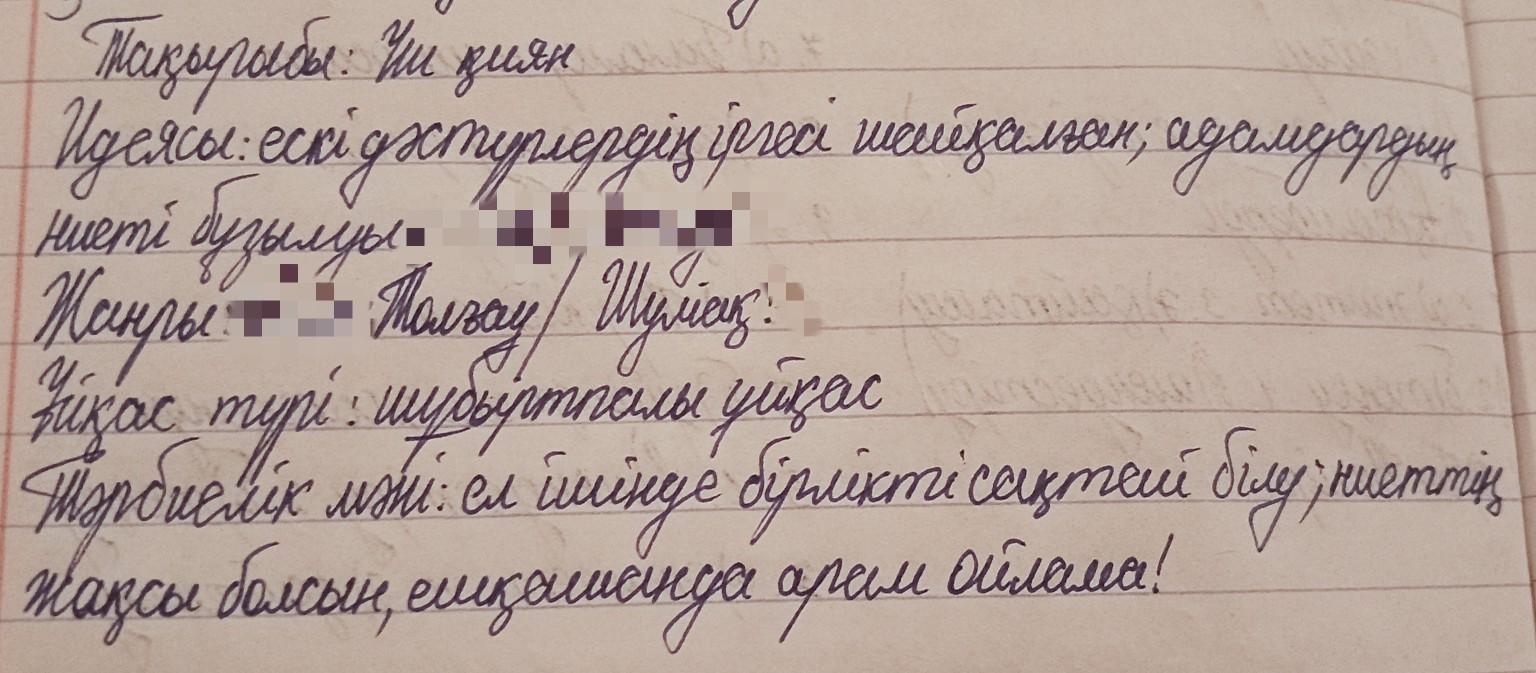 Тақырыбы: Үш қиян
Идеясы: ескі дәстүрлердің іргесі шайқалған; адамдардың
ниеті бұзылуы
Жанры: Толғау / Шумақ:
Ұйқас түрі: шұбыртпалы ұйқас
Тәрбиелік мәні: ел ішінде бірлікті сақтай білу; ниеттің
жақсы болсын, ешқашанда арам ойлама!